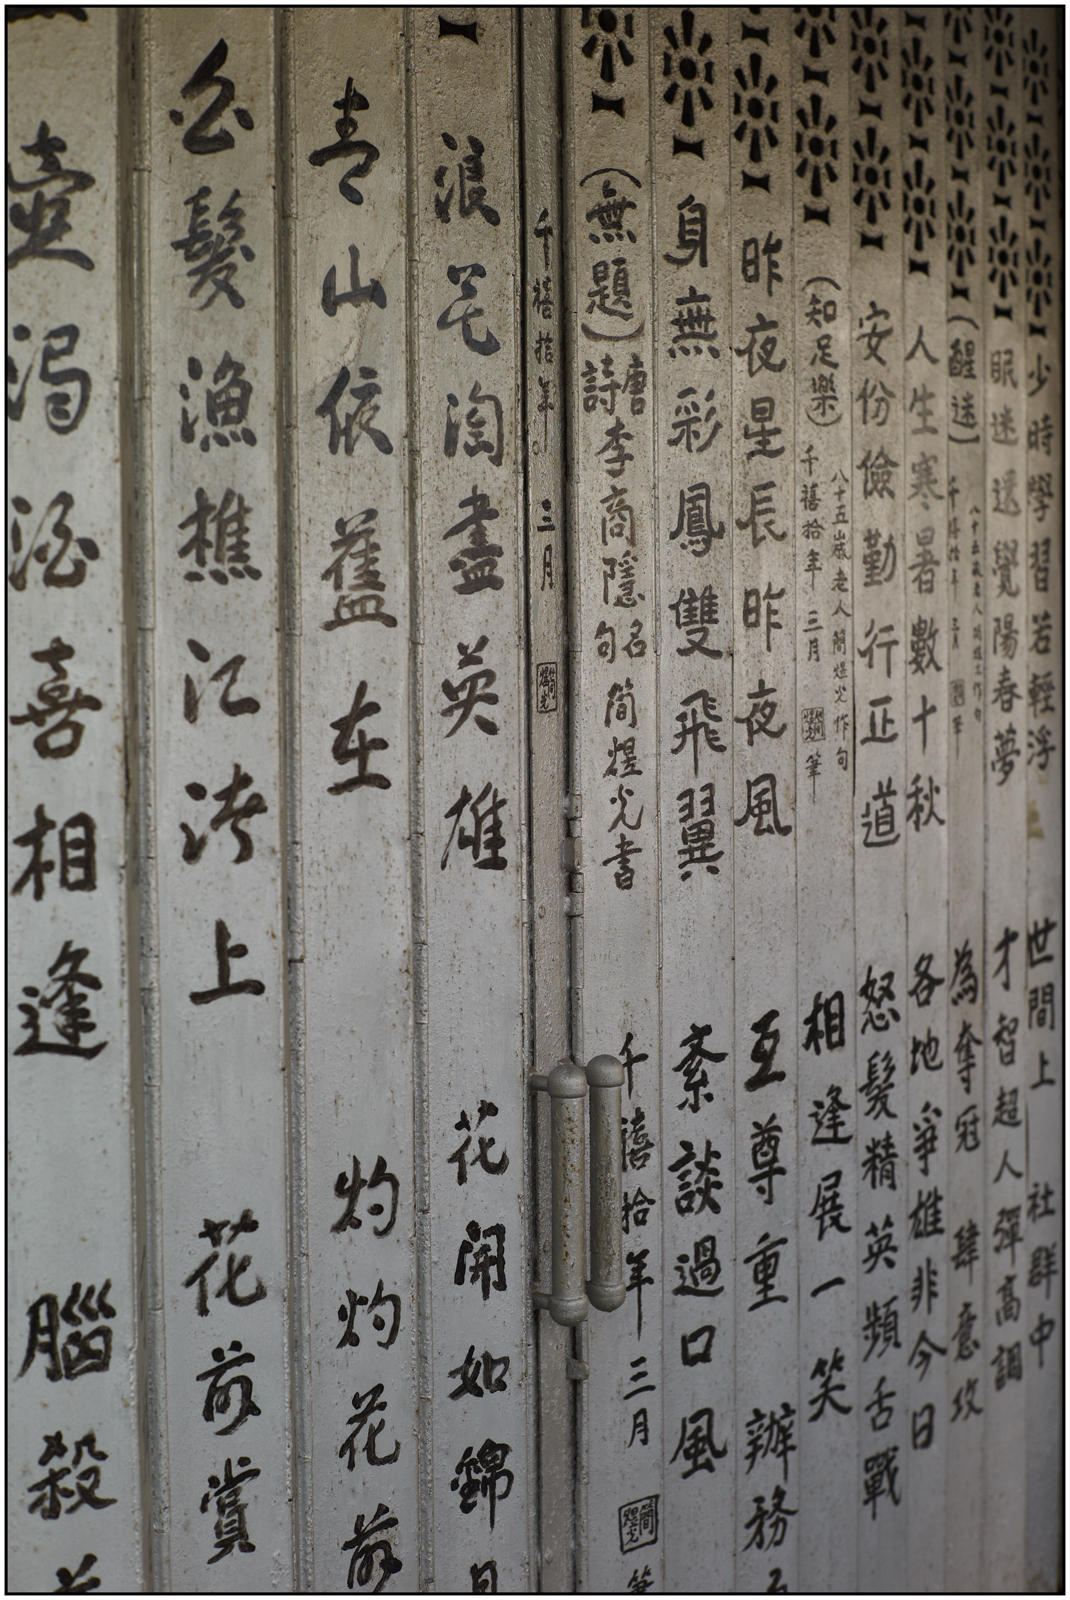 少時學習若輕浮
眼迷還覺陽春夢
(醒迷)
千禧拾年 三月
人生寒暑數十秋
安份儉勤行正道
(知足樂)
八十五歲老人簡煜光作句
千禧拾年 三月 簡煜光 筆
昨夜星長昨夜風
身無彩鳳雙飛翼
(無題)唐詩李商隱名句 簡煜光書
世間上 社群中
才智超人彈高調
為奪冠 肆意攻
各地爭雄非今日
怒髮精英頻舌戰
相逢展一笑
互尊重 辦務
紊談過口風
千禧拾年 三月 簡煜光 筆
千禧拾年。三月 簡煜光
浪花淘盡英雄
青山依舊在
白髮漁樵江渚上
壺濁酒喜相逢
花開如錦
灼灼花前
花前賞
腦殺